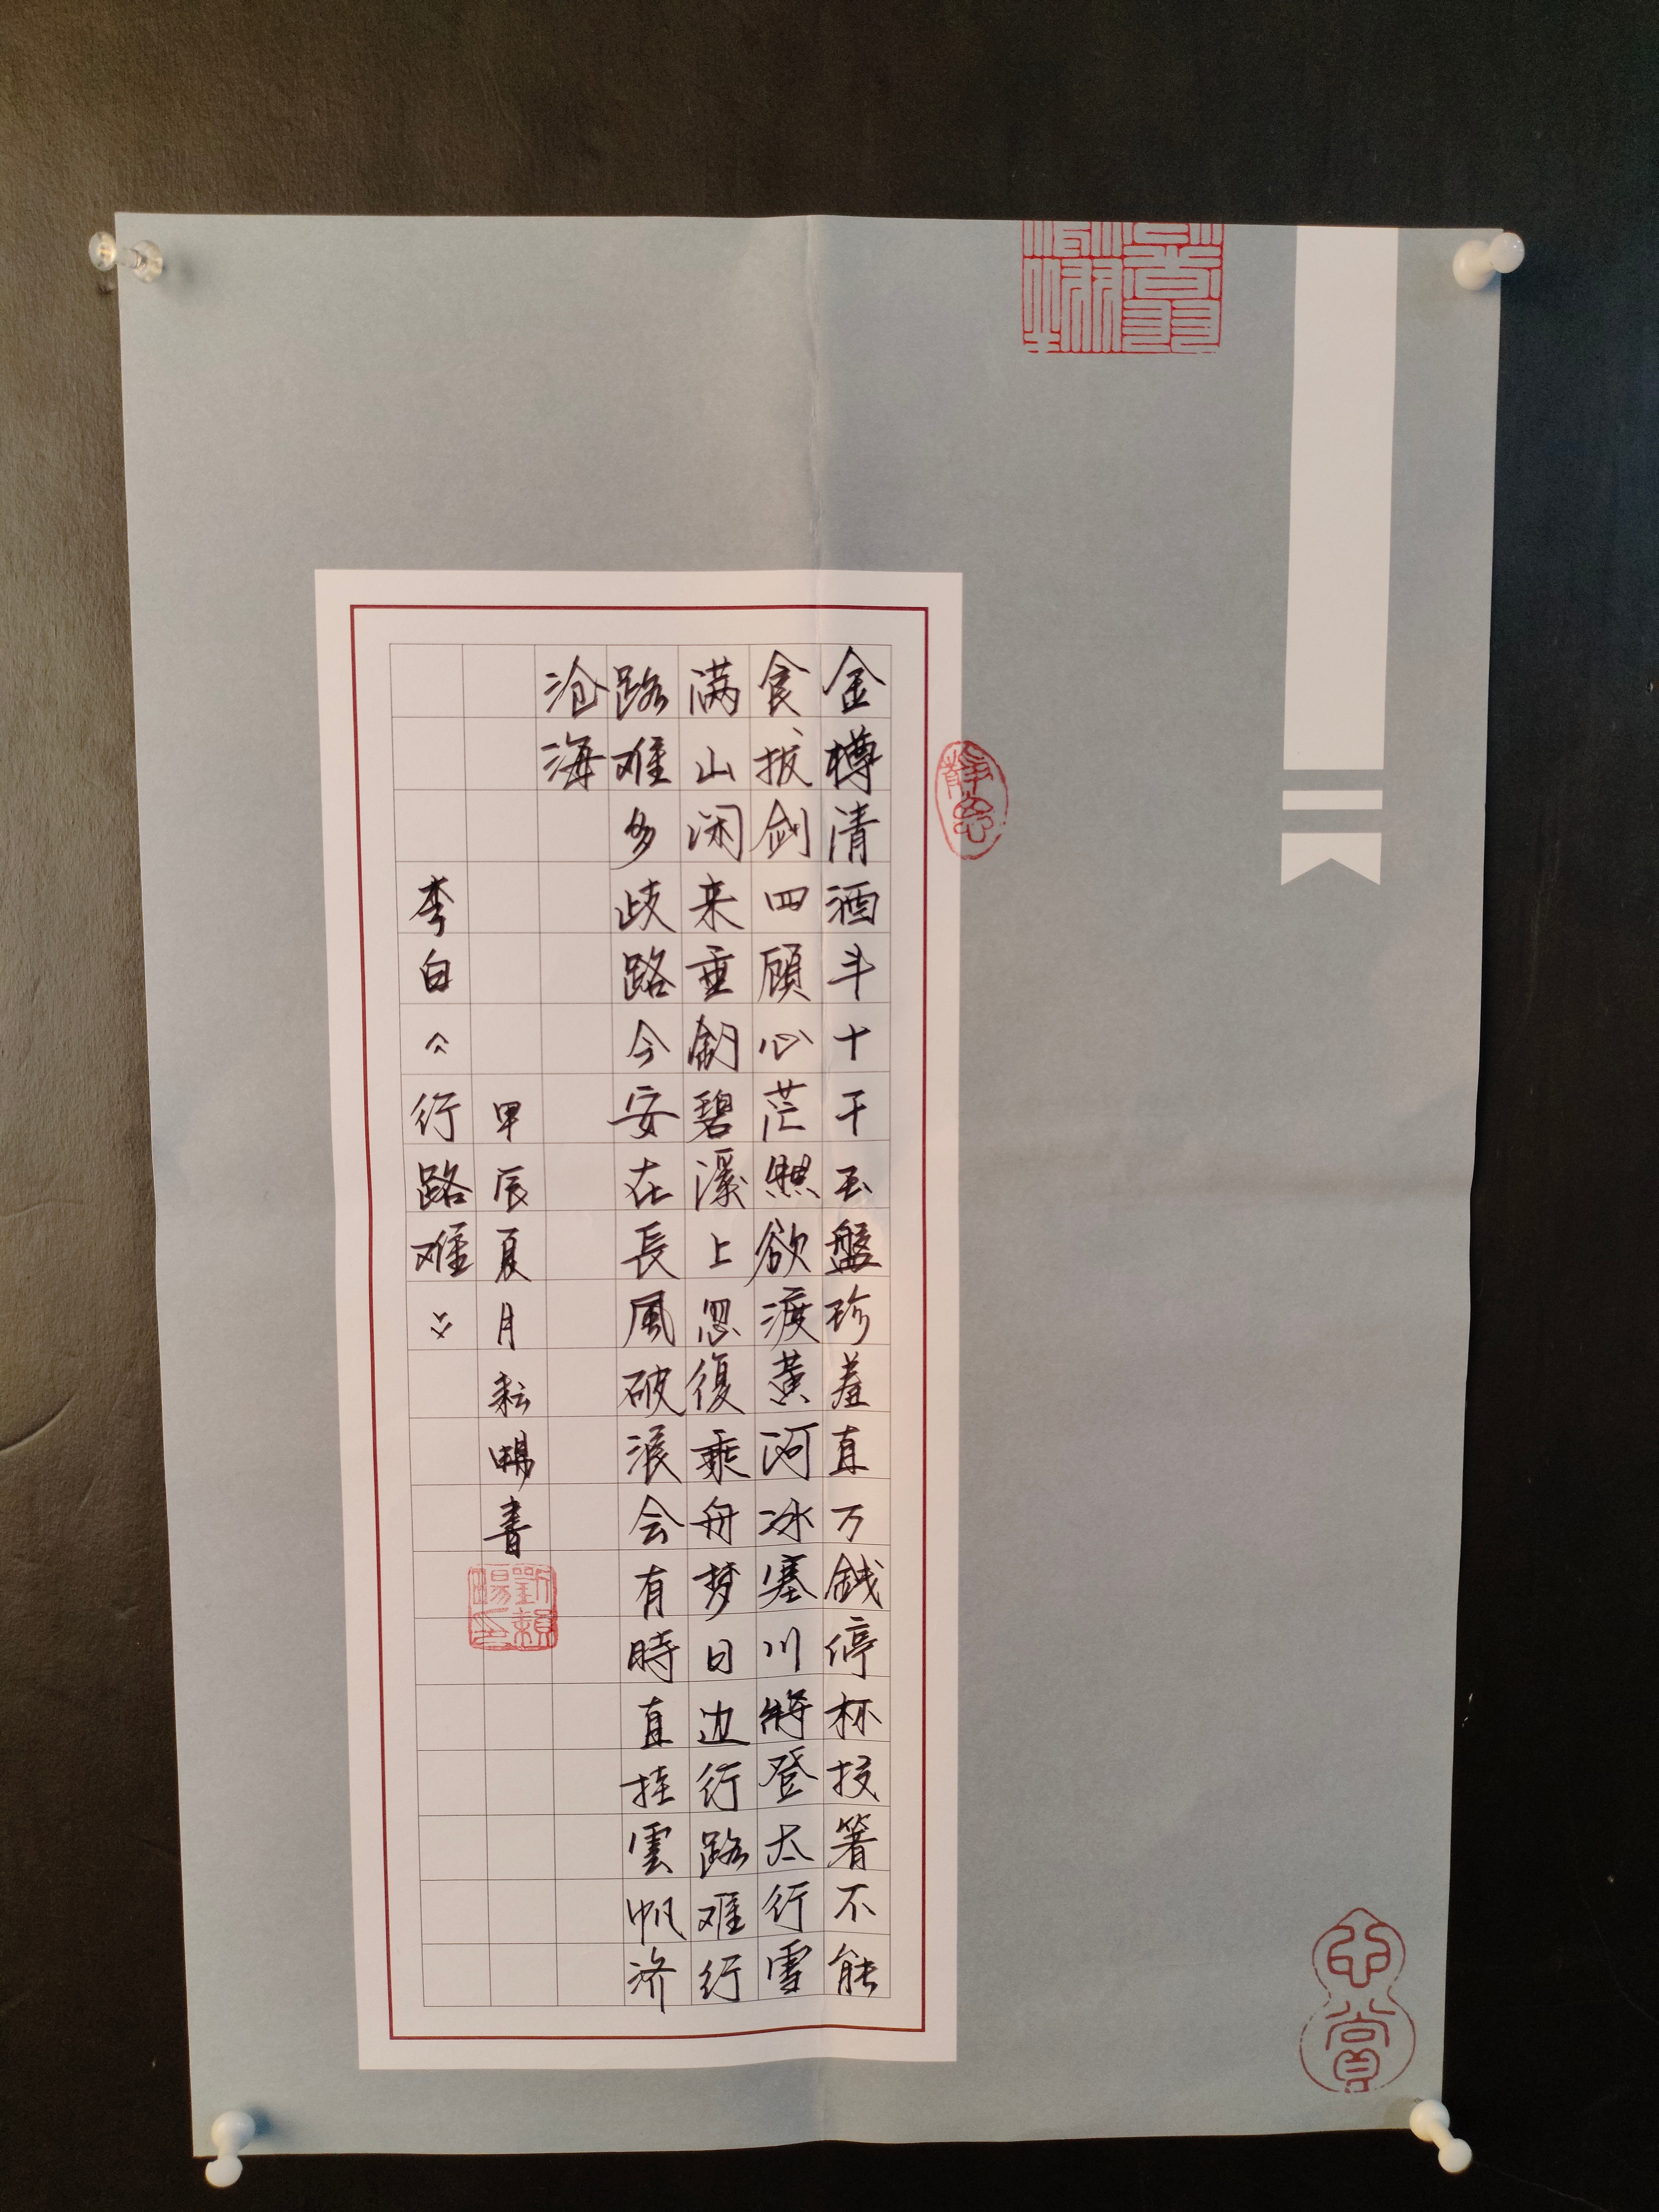 金樽清酒斗十千玉盤珍羞直万錢停杯投箸不能
食拔剑四顧心茫然欲渡黃河冰塞川將登太行雪
满山闲来垂釣碧溪上忽復乘舟梦日边行路难行
路难多歧路今安在長風破浪会有時直挂雲帆济
沧海
甲辰夏月耘暢書
李白《行路难》
静思
劉賴暢印